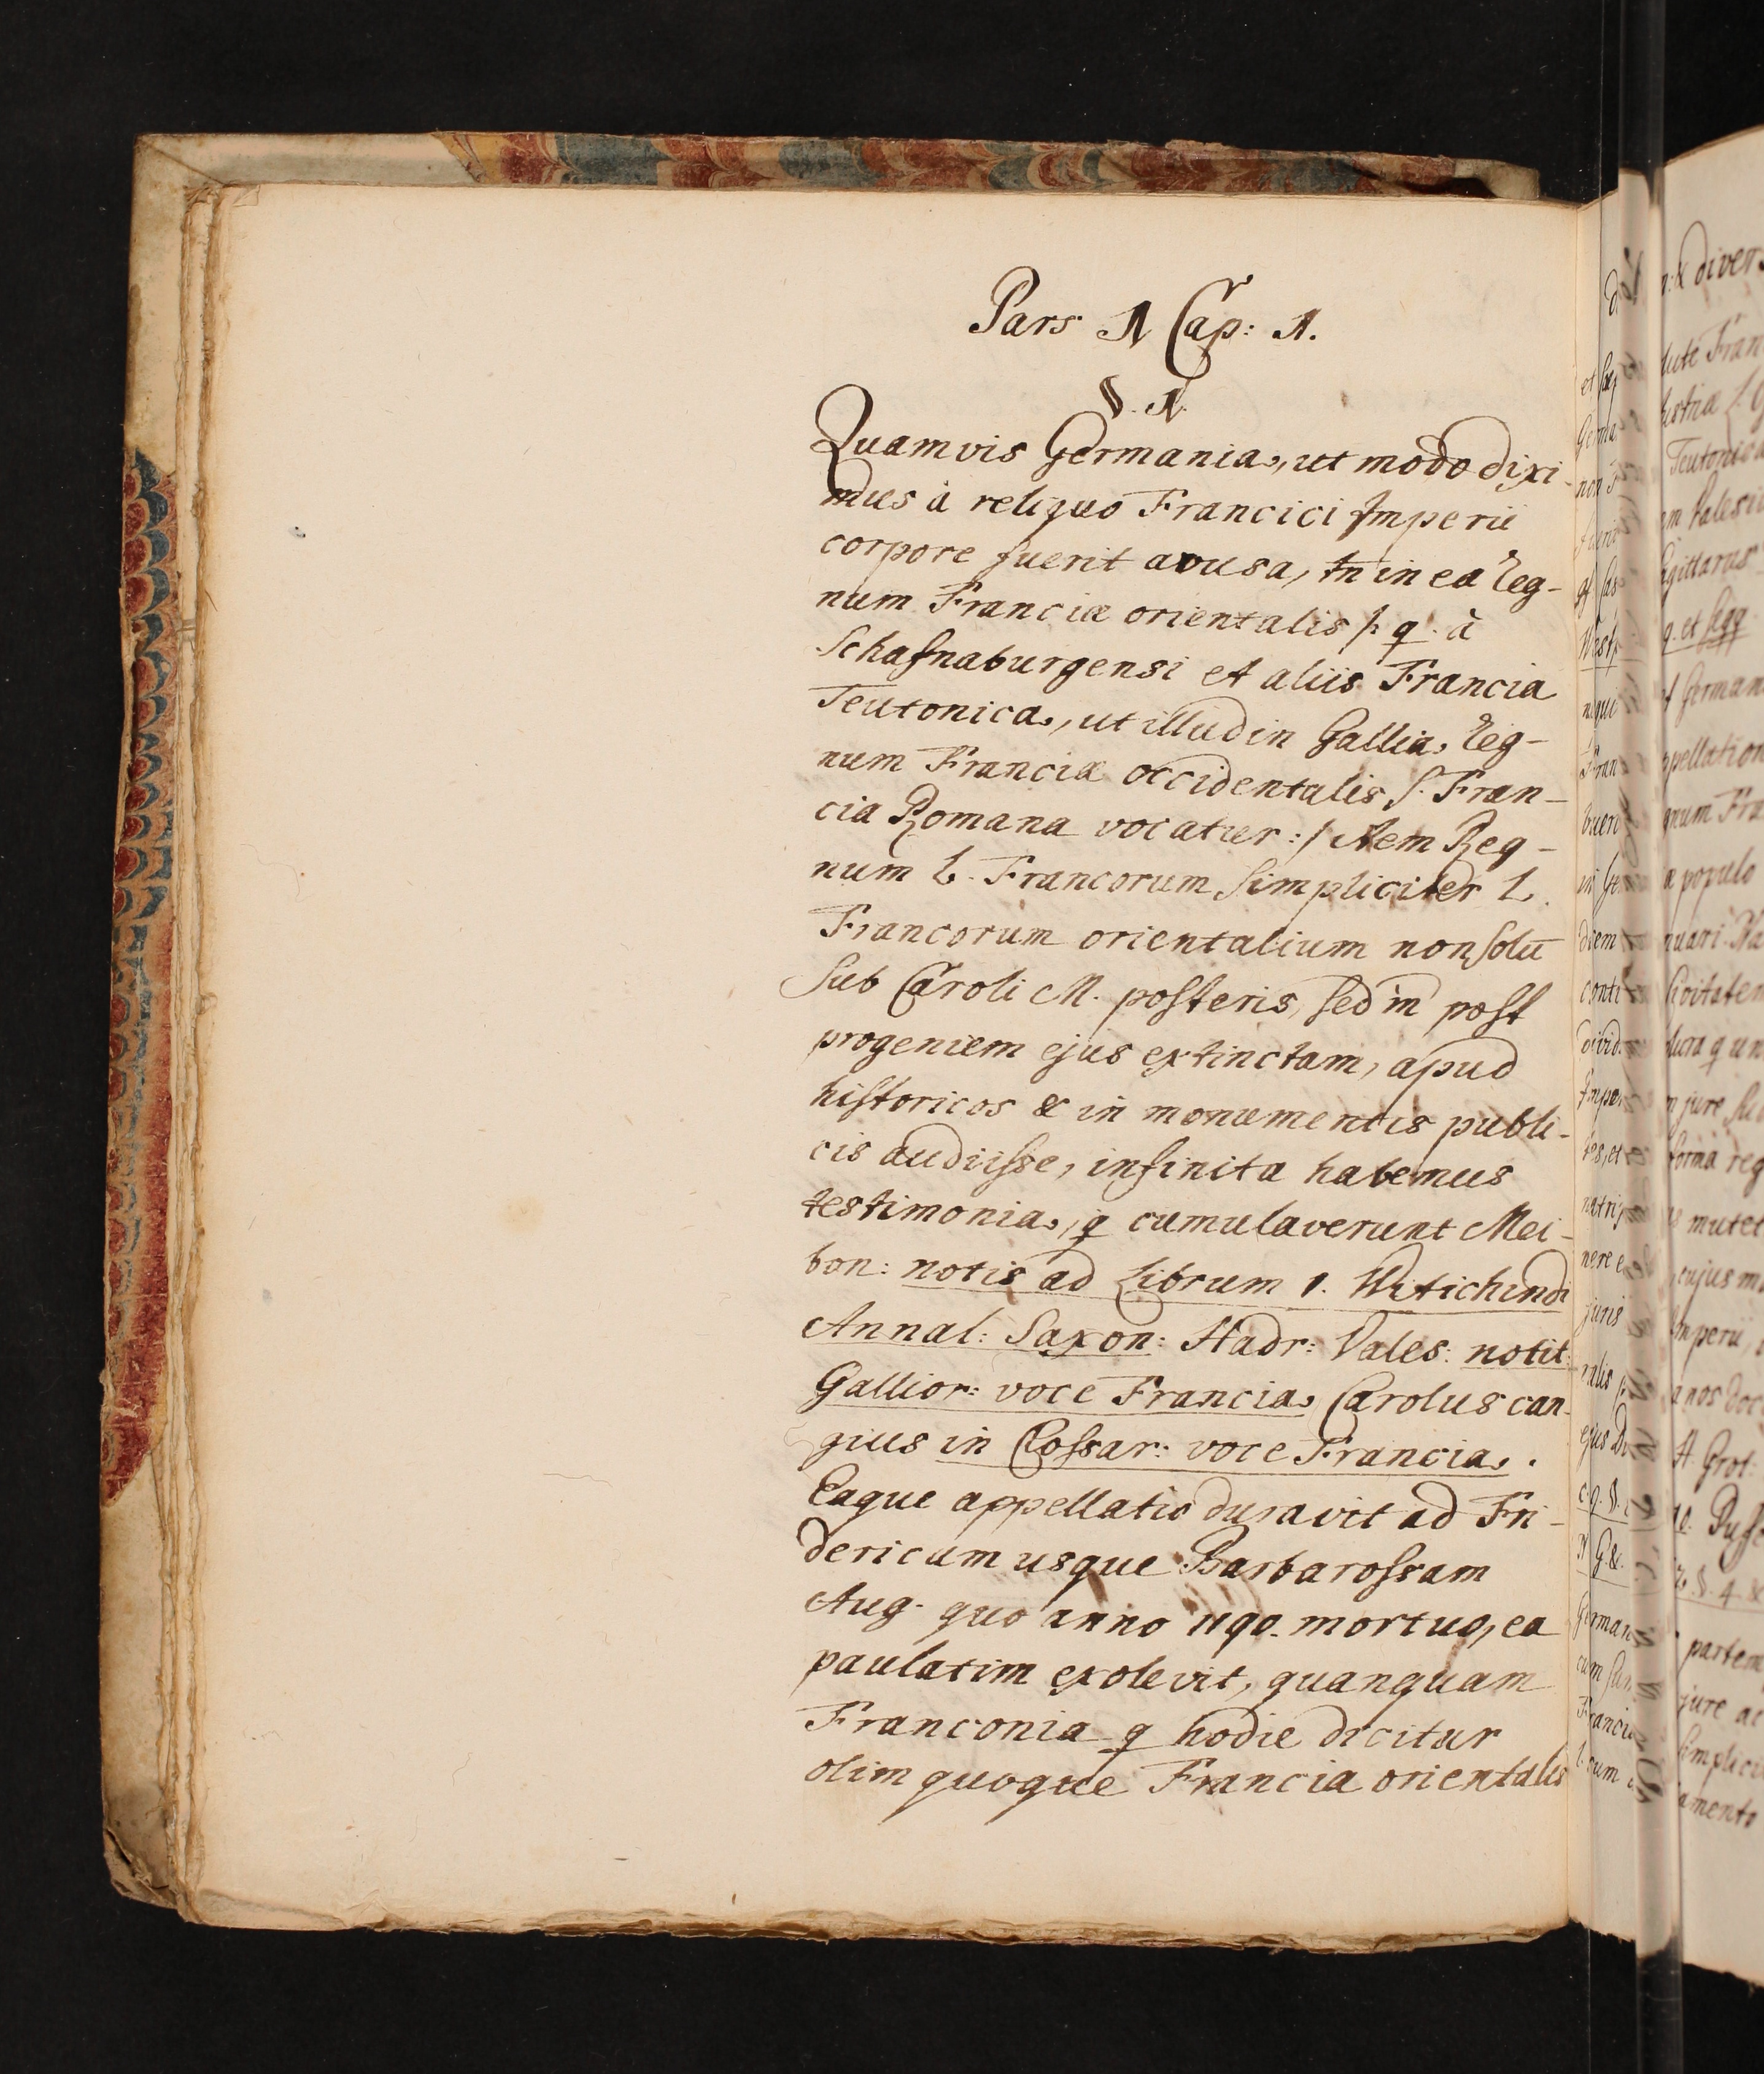 Pars 1 Cap: 1.
§. 1.
Quamvis Germania, ut modo dixi-
mus à reliquo Francici Imperii
corpore fuerit avusa, tn in ea Reg-
num Franciæ orientalis /: q. à
Schafnaburgensi et aliis Francia
Teutonica, ut illud in Gallia, Reg-
num Franciæ occidentalis s. Fran-
cia Romana vocatur :/ Item Reg-
num l. Francorum simpliciter l.
Francorum orientalium non solū
sub Caroli M. posteris, sed in post
progeniem ejus extinctam, apud
historicos & in monumentis publi-
cis audiisse, infinita habemus
testimonia, q cumulaverunt Mei-
bon: notis ad Librum 1. Witichindi
Annal: Saxon: Hadr: Vales: notit:
Gallior: voce Francia, Carolus can-
gius in Glossar: voce Francia.
Eaque appellatio duravit ad Fri-
dericum usque Barbarossam
Aug. quo anno 1190. mortuo, ea
paulatim exolevit, quanquam
Franconia q hodie dicitur
olim quoque Francia orientalis